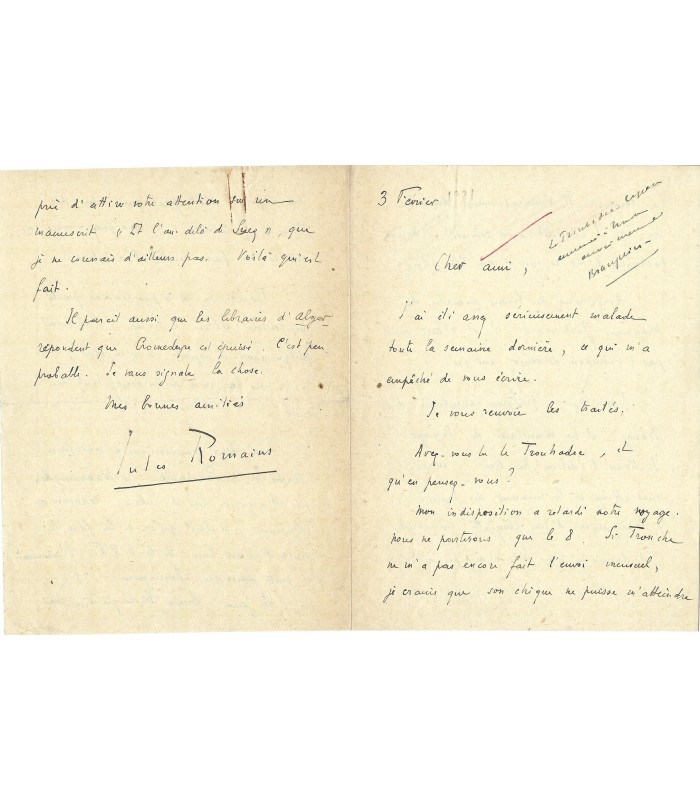 3 Février
Le Troubadec
Cher ami,
J'ai été assez sérieusement malade
toute la semaine dernière, ce qui m'a
empêché de vous écrire.
Je vous renvoie les traités.
Avez-vous lu le Trouhadec, et
qu'en pensez-vous ?
Mon indisposition a retardé notre voyage.
Nous ne partirons que le 8. Si Tronche
ne m'a pas encore fait l'envoi mensuel,
je crains que son chèque ne puisse m'atteindre
prié d'attirer votre attention sur un
manuscrit « Et l'au-delà de Suez », que
je ne connais d'ailleurs pas. Voilà qui est
fait.
Il paraît aussi que les libraires d'Alger
répondent que Cromedeyre est épuisé. C'est peu
probable. Je vous signale la chose.
Mes bonnes amitiés
Jules Romains